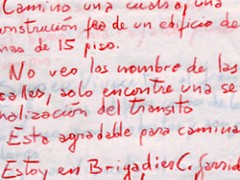 Camino una cuadra, una
onstrucción fea de un edificio de
mas de 15 piso.
No veo los nombre de las
calles, solo encontre una se
nalización del transito
Esta agradable para camina
Estoy en Brigadier C. Garrid